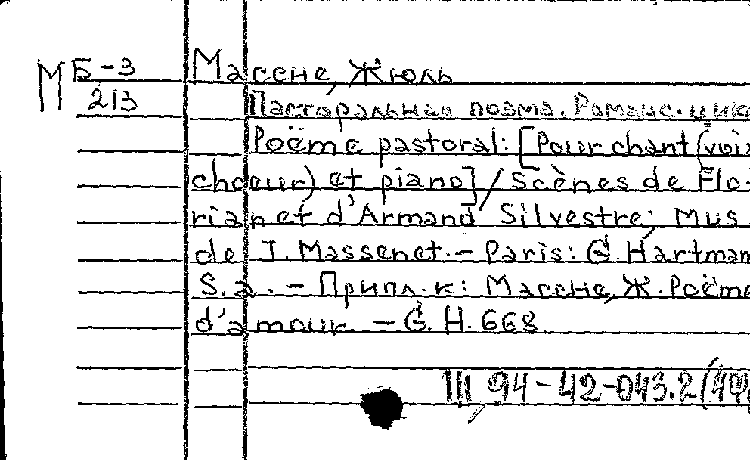 М Б-3 Массне, Жюль
213 Пасторальная поэма. Романс. цик
Poëme pastoral: [Pour chant (voix
choeur) et piano] / Scènes de Flo-
rian et d'Armand Silvestre; Mus
de J. Massenet. – Paris: G. Hartman
S.a. – Припл. к: Массне, Ж. Poëme
d'amour. – G. H. 668
III, 94-42-043.2